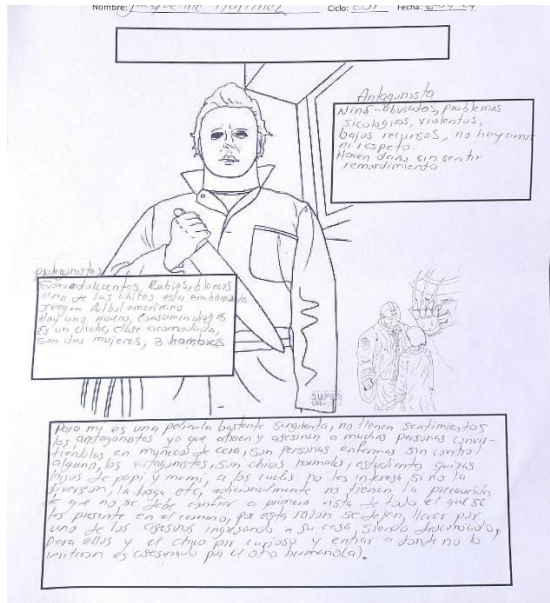 Nombre: Jacqueline Martinez Ciclo: 601 Fecha: 6-04-24
Antagonista
Niños abusados, problemas
sicologicos, violentos,
bajos recursos, no hay amor
ni respeto.
Hacen daño sin sentir
remordimiento
protagonistas
Son adolecentes, Rubios, blancos
una de las chicas esta embarazada
juegan futbol americano
Hay una morena, consumen drogas
Es un cliche, clase acomodada,
son dos mujeres, 3 hombres
SUPER
Para my es una pelicula bastante sangrienta, no tienen sentimientos
los antagonistas ya que atraen y asesinan a muchas personas convir-
tiendolos en muñecos de cera, son personas enfermas sin control
alguno, los protagonistas, son chicos normales, estudiantes quizas
hijos de papi y mami, a los cuales no les interesa si no la
diversion, la droga etc, adicionalmente no tienen la precaución
de que no se debe confiar a primera vista de todo el que se
les presente en el camino, por esta razon se dejan llevar por
uno de los asesinos ingresando a su casa, siendo desconocido,
para ellos y el chico por curioso y entrar a donde no lo
invitaron es asesinado por el otro hermano(a).